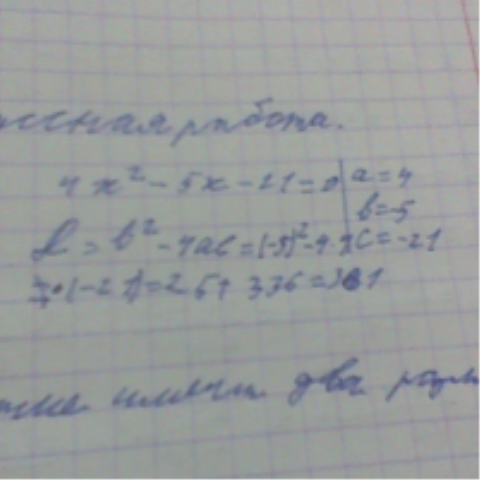 работа.
4x² - 5x - 21 = 0 | a = 4
b = -5
D = b² - 4ac = (-5)² - 4 · c = -21
4 · (-21) = 25 + 336 = 361
имеет два